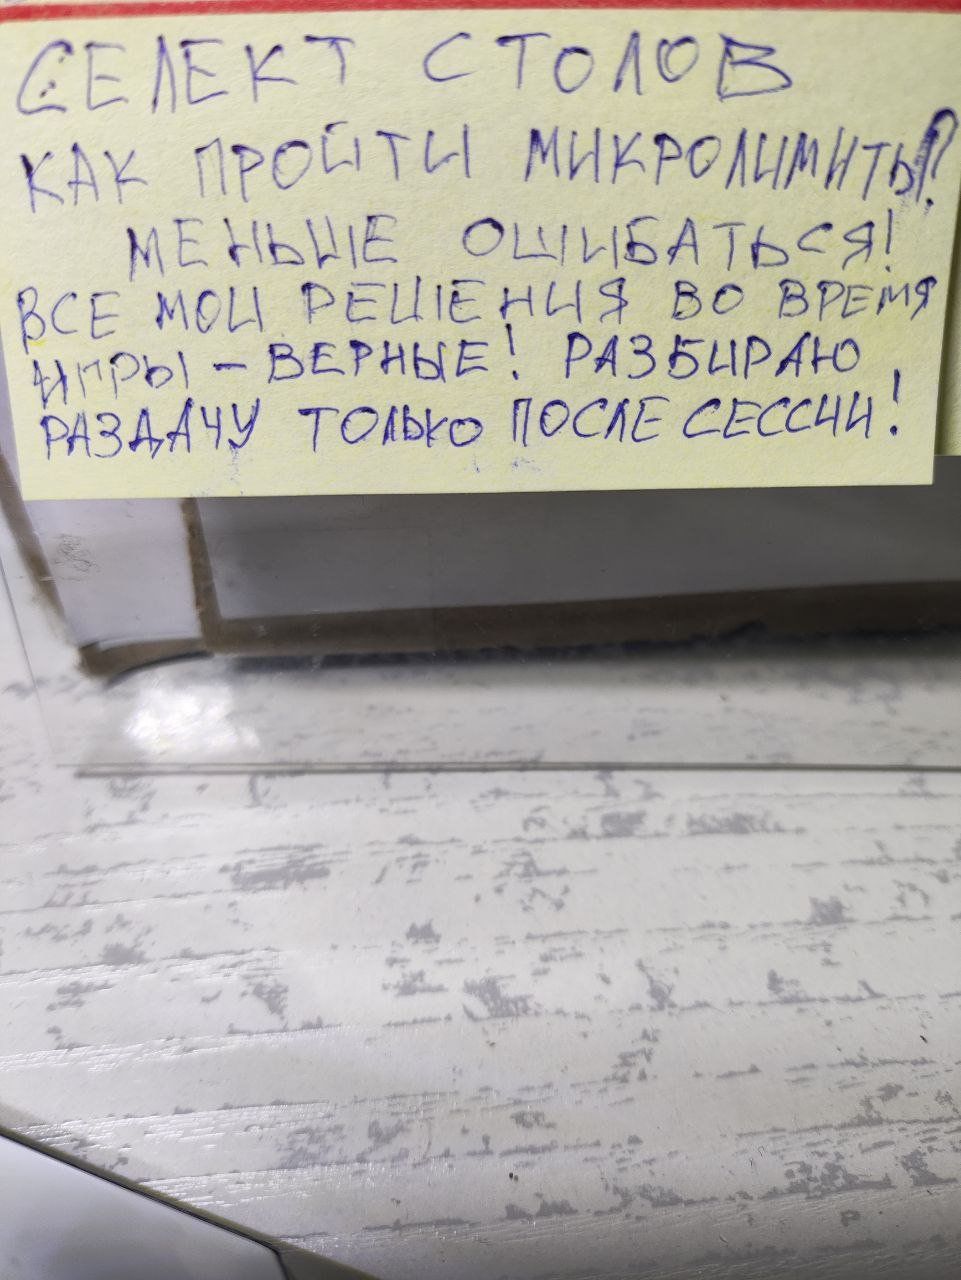 СЕЛЕКТ СТОЛОВ
КАК ПРОЙТИ МИКРОЛИМИТЫ?
МЕНЬШЕ ОШИБАТЬСЯ!
ВСЕ МОИ РЕШЕНИЯ ВО ВРЕМЯ
ИГРЫ – ВЕРНЫЕ! РАЗБИРАЮ
РАЗДАЧУ ТОЛЬКО ПОСЛЕ СЕССИИ!